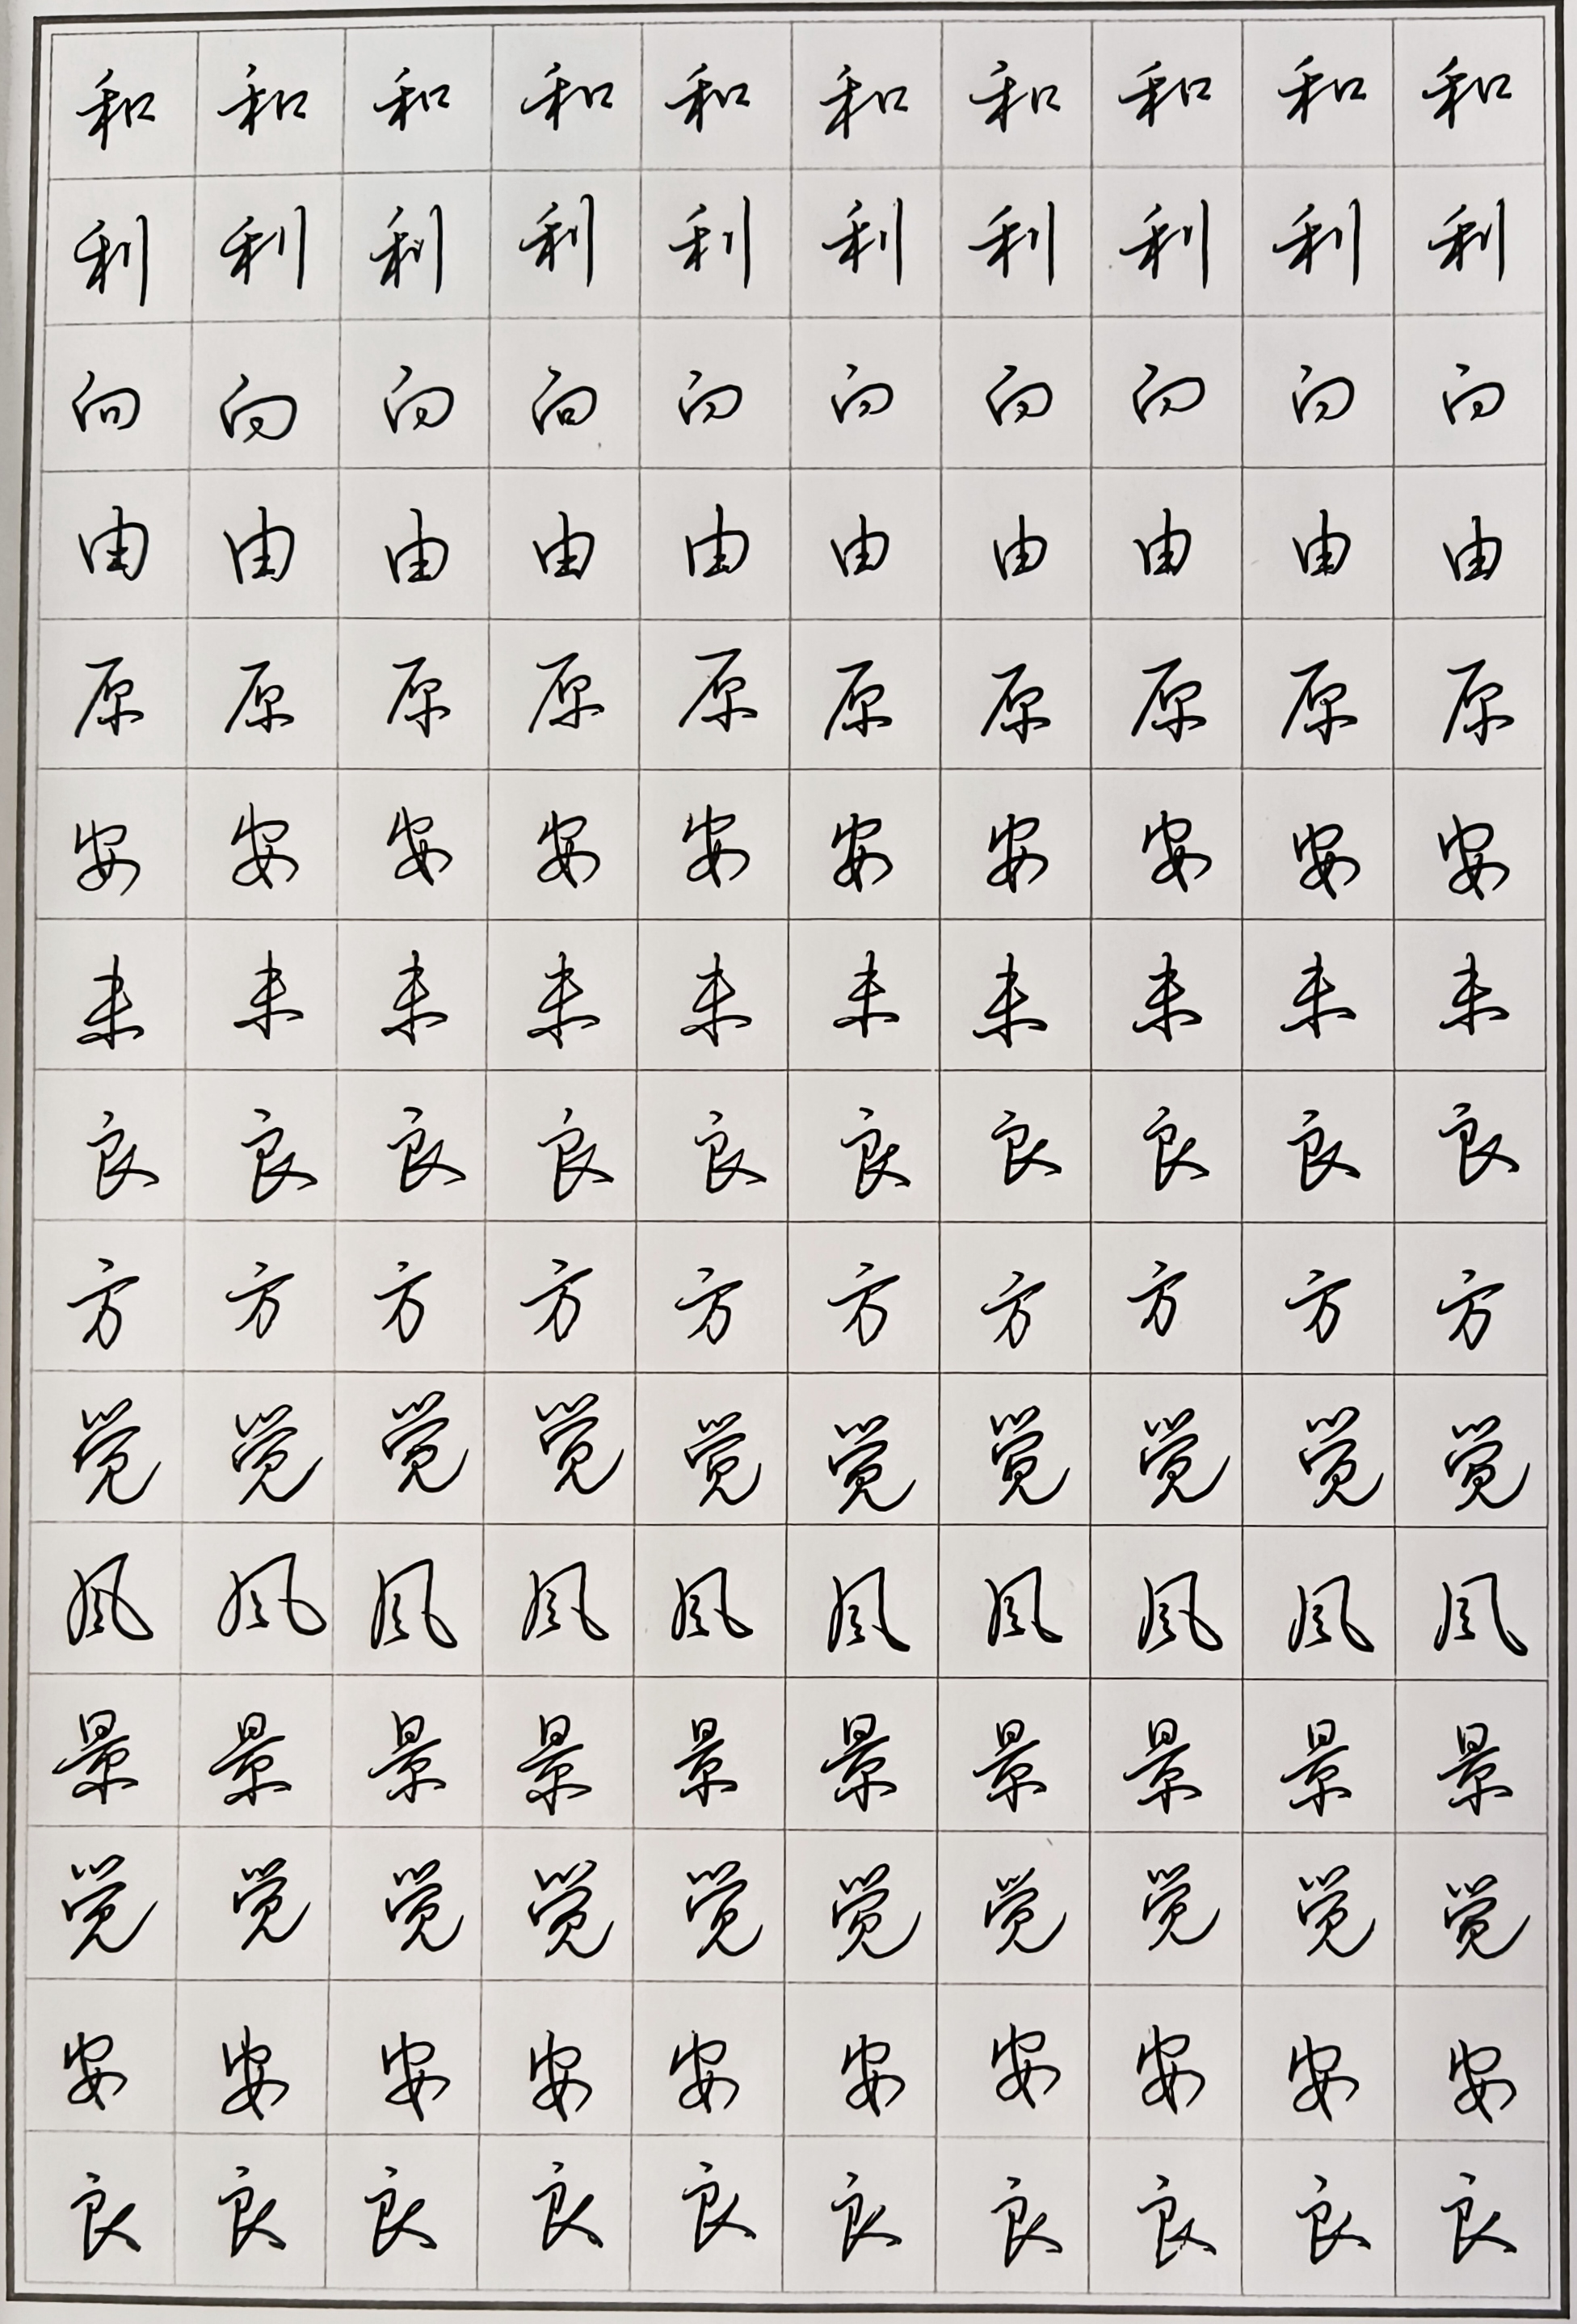 和和和和和和和和和和
利利利利利利利利利利
向向向向向向向向向向
由由由由由由由由由由
原原原原原原原原原原
安安安安安安安安安安
未未未未未未未未未未
良良良良良良良良良良
方方方方方方方方方方
觉觉觉觉觉觉觉觉觉觉
风风风风风风风风风风
景景景景景景景景景景
觉觉觉觉觉觉觉觉觉觉
安安安安安安安安安安
良良良良良良良良良良